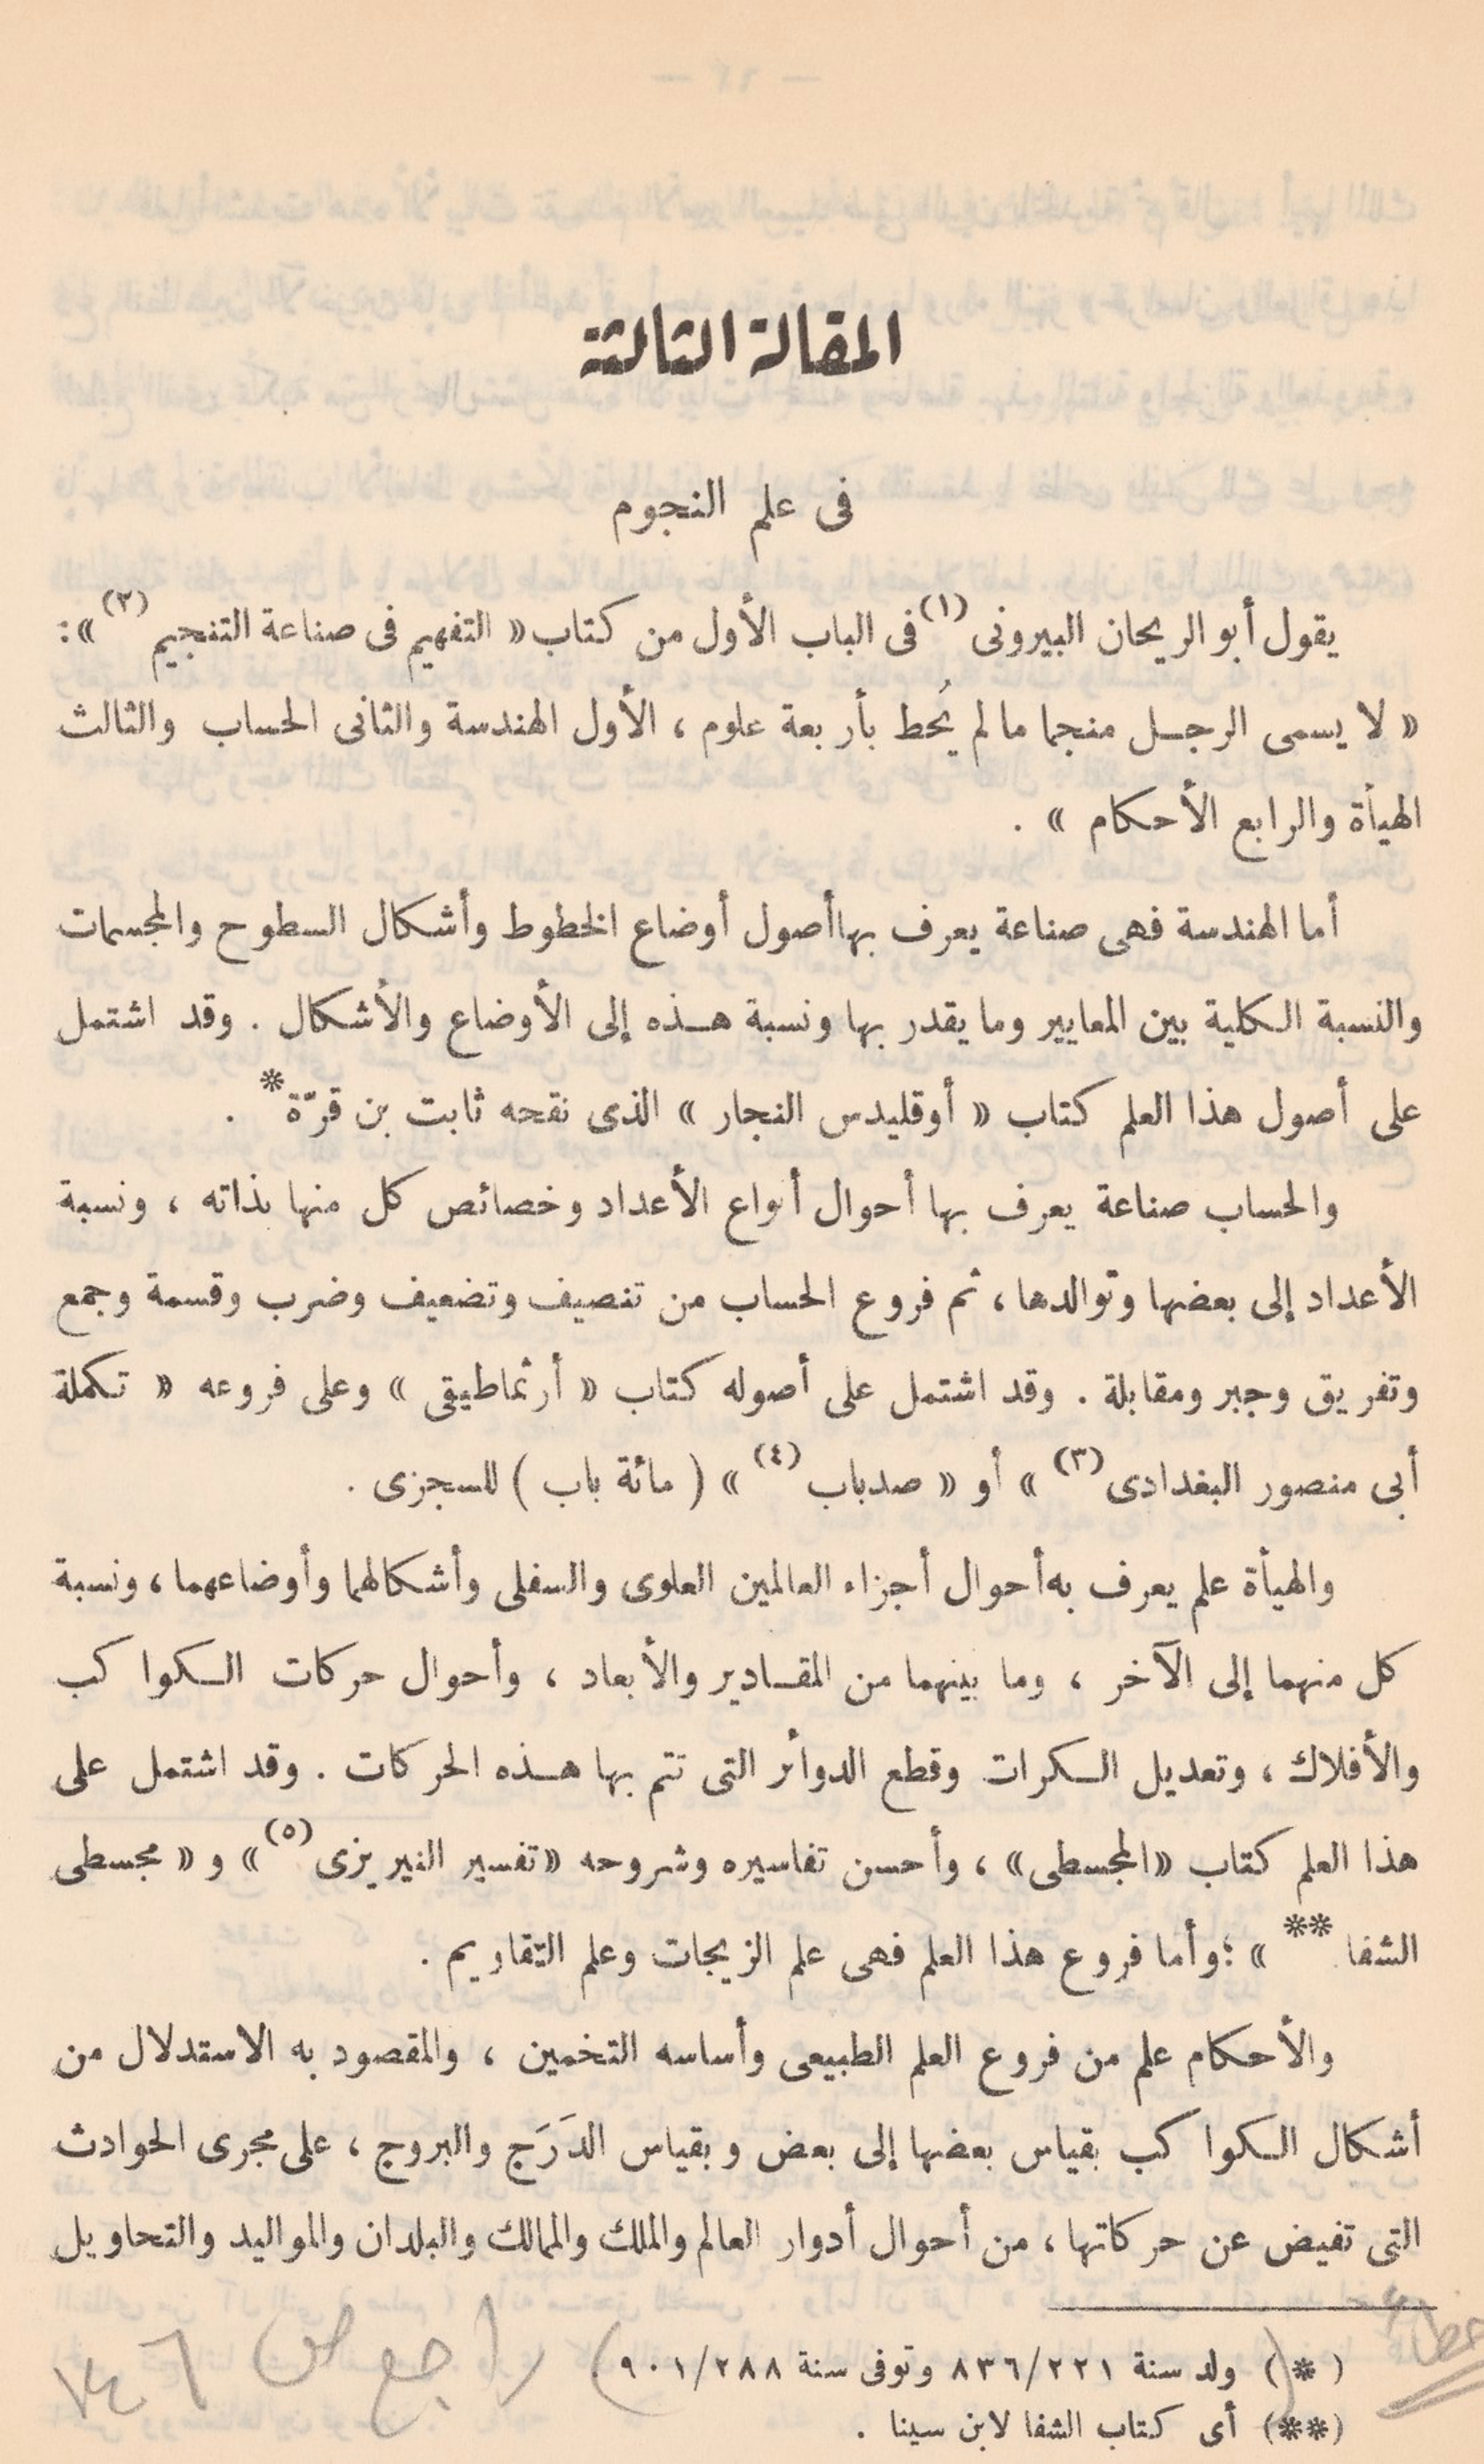 المقالة الثالثة
فى علم النجوم
يقول أبو الريحان البيرونى (١) فى الباب الأول من كتاب « التفهيم فى صناعة التنجيم (٢) » :
« لا يسمى الرجل منجما ما لم يُحط بأربعة علوم ، الأول الهندسة والثانى الحساب والثالث
الهيأة والرابع الأحكام » .
أما الهندسة فهى صناعة يعرف بها أصول أوضاع الخطوط وأشكال السطوح والمجسمات
والنسبة الكلية بين المعايير وما يقدر بها ونسبة هذه إلى الأوضاع والأشكال . وقد اشتمل
على أصول هذا العلم كتاب « أوقليدس النجار » الذى نقحه ثابت بن قرّة * .
والحساب صناعة يعرف بها أحوال أنواع الأعداد وخصائص كل منها بذاته ، ونسبة
الأعداد إلى بعضها وتوالدها ، ثم فروع الحساب من تنصيف وتضعيف وضرب وقسمة وجمع
وتفريق وجبر ومقابلة . وقد اشتمل على أصوله كتاب « أرثماطيقى » وعلى فروعه « تكملة
أبى منصور البغدادى (٣) » أو « صدباب (٤) » ( مائة باب ) للسجزى .
والهيأة علم يعرف به أحوال أجزاء العالمين العلوى والسفلى وأشكالهما وأوضاعهما ، ونسبة
كل منهما إلى الآخر ، وما بينهما من المقادير والأبعاد ، وأحوال حركات الكواكب
والأفلاك ، وتعديل الكرات وقطع الدوائر التى تتم بها هذه الحركات . وقد اشتمل على
هذا العلم كتاب « المجسطى » ، وأحسن تفاسيره وشروحه « تفسير النيريزى (٥) » و « مجسطى
الشفا ** » ؛ وأما فروع هذا العلم فهى علم الزيجات وعلم التقاويم .
والأحكام علم من فروع العلم الطبيعى وأساسه التخمين ، والمقصود به الاستدلال من
أشكال الكواكب بقياس بعضها إلى بعض وبقياس الدَرَج والبروج ، على مجرى الحوادث
التى تفيض عن حركاتها ، من أحوال أدوار العالم والملك والممالك والبلدان والمواليد والتحاويل
(*) ولد سنة ٨٣٦/٢٢١ وتوفى سنة ٩٠١/٢٨٨
راجع ص
(**) أى كتاب الشفا لابن سينا .